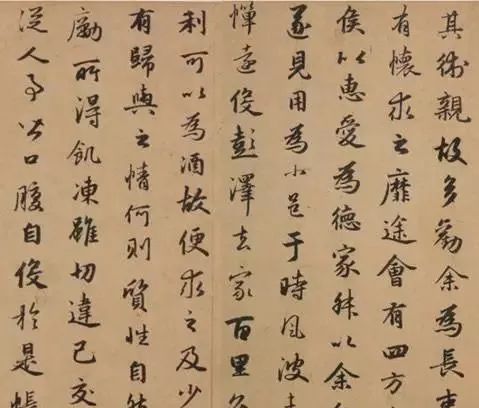 其術親故多勸余為長吏
有懷求之靡途會有四方
侯以惠愛為德家叔以余
遂見用為小邑于時風波未
憚遠役彭澤去家百里公
利可以為酒故便求之及少
有歸與之情何則質性自然
勵所得飢凍雖切違己交
從人事皆口腹自役於是悵